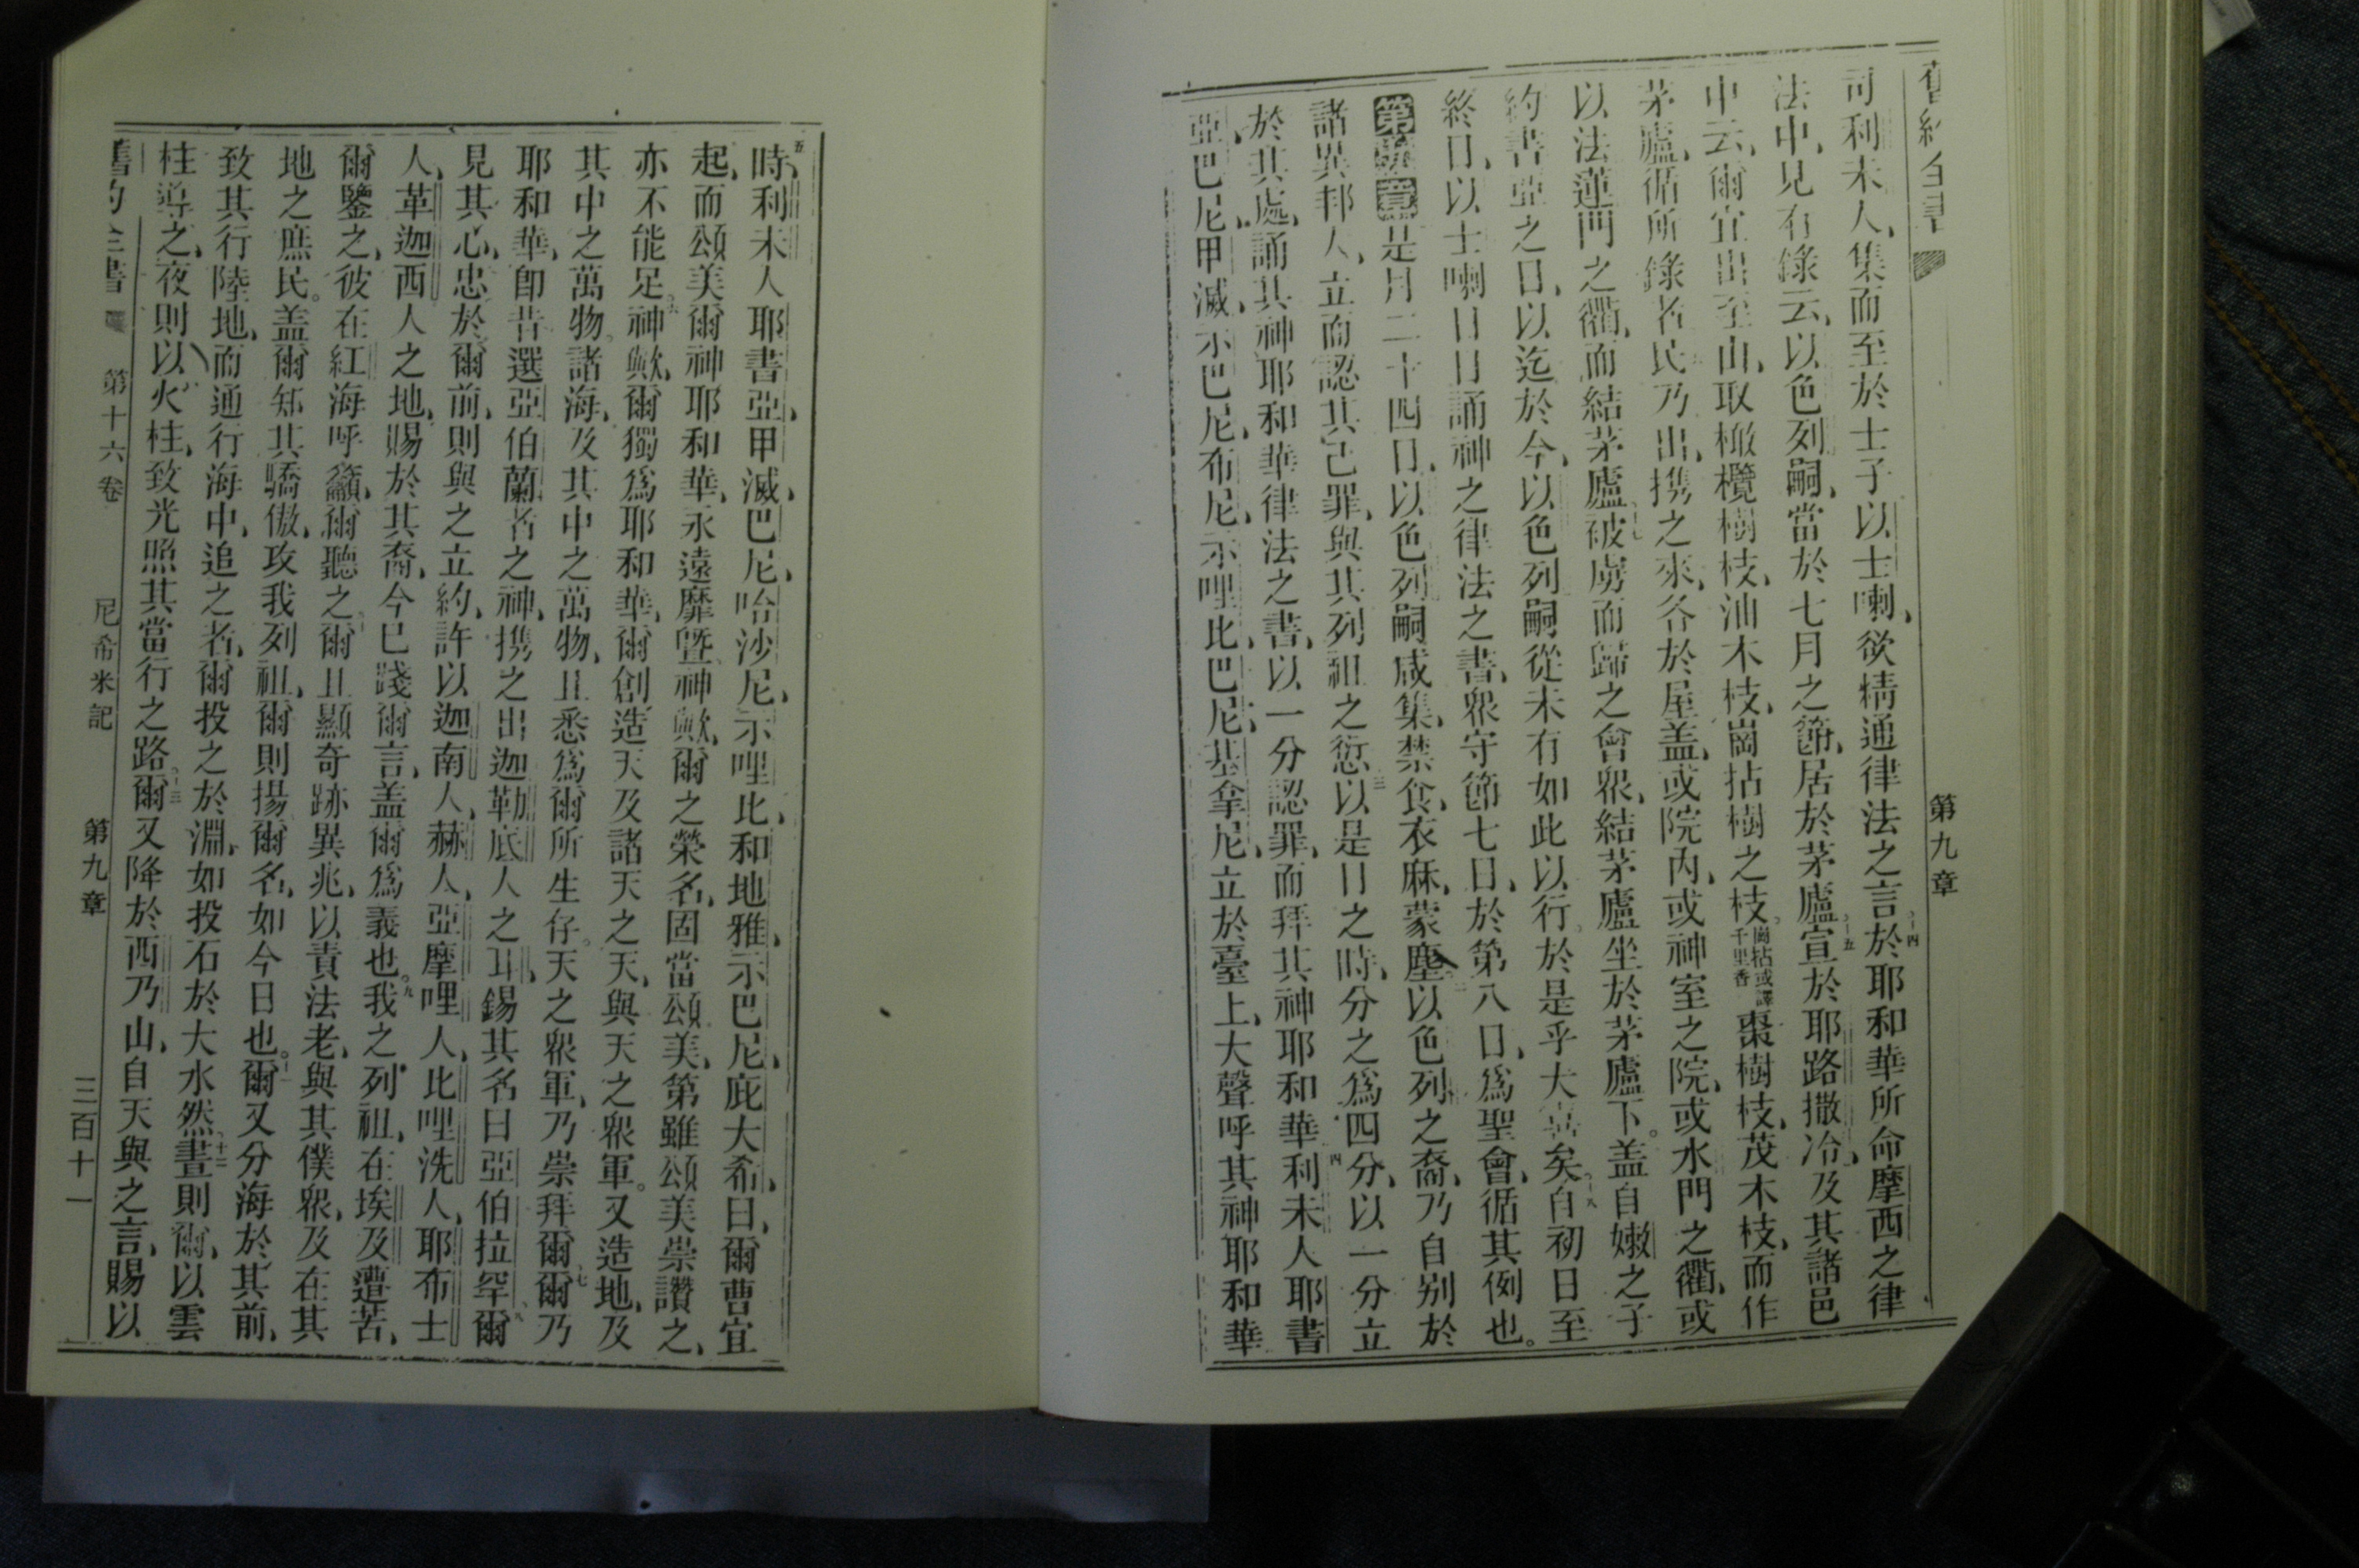 舊約全書
第九章
司利未人、集而至於士子以士喇、欲精通律法之言、十四於耶和華所命摩西之律
法中、見有錄云、以色列嗣、當於七月之節、居於茅廬、十五宣於耶路撒冷、及其諸邑
中云、爾宜出至山、取橄欖樹枝、油木枝、崗拈樹之枝、崗拈或譯千里香棗樹枝、茂木枝、而作
茅廬、循所錄者民乃出、攜之來、各於屋盖、或院內、或神室之院、或水門之衢、或
以法蓮門之衢、而結茅廬十七被虜而歸之會眾、結茅廬坐於茅廬下。盖自嫩之子
約書亞之日、以迄於今、以色列嗣從未有如此以行。於是乎大喜矣十八自初日至
終日、以士喇日日誦神之律法之書、眾守節七日、於第八日、爲聖會、循其例也。
第九章是月二十四日、以色列嗣咸集、禁食、衣麻、蒙塵二以色列之裔、乃自别於
諸異邦人、立而認其己罪、與其列祖之愆三以是日之時、分之爲四分、以一分立
於其處、誦其神耶和華律法之書、以一分認罪、而拜其神耶和華四利未人耶書
亞、巴尼、甲滅、示巴尼、布尼、示哩比、巴尼、基拿尼、立於臺上、大聲呼其神耶和華
五時、利未人耶書亞、甲滅、巴尼、哈沙尼、示哩比、和地雅、示巴尼、庇大希、曰、爾曹宜
起、而頌美爾神耶和華、永遠靡曁、神歟、爾之榮名、固當頌美、第雖頌美崇讚之、
亦不能足。六神歟、爾獨爲耶和華、爾創造天及諸天之天、與天之眾軍。又造地、及
其中之萬物。諸海、及其中之萬物、且悉爲爾所生存。天之眾軍、乃崇拜爾七爾乃
耶和華、卽昔選亞伯蘭者之神、携之出迦勒底人之耳、錫其名曰亞伯拉罕八爾
見其心、忠於爾前、則與之立約、許以迦南人、赫人、亞摩哩人、比哩洗人、耶布士
人、革迦西人之地、賜於其裔、今已踐爾言、盖爾爲義也。九我之列祖、在埃及遭苦、
爾鑒之、彼在紅海呼籲、爾聽之、十爾且顯奇跡異兆、以責法老、與其僕眾、及在其
地之庶民。盖爾知其驕傲、攻我列祖、爾則揚爾名、如今日也。十一爾又分海於其前、
致其行陸地、而通行海中、追之者、爾投之於淵、如投石於大水然十二晝則爾、以雲
柱導之、夜則以火柱、致光照其當行之路十三爾又降於西乃山、自天與之言、賜以
舊約全書
第十六卷
尼希米記
第九章
三百十一